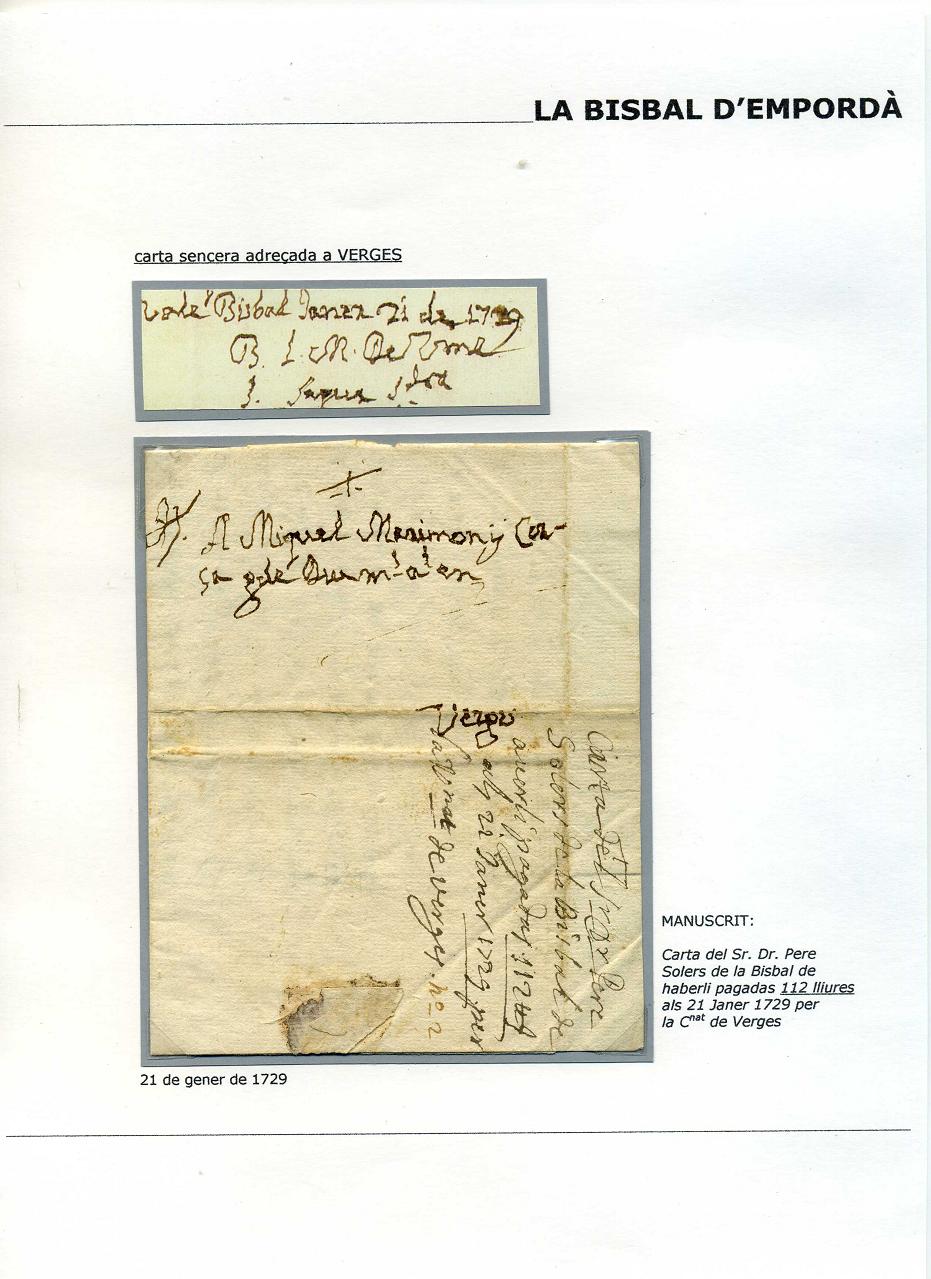 LA BISBAL D'EMPORDÀ
carta sencera adreçada a VERGES
Bisbal Janer 21 de 1729
B. L. M. De Vme
A Miquel Marimony Cor-
Verges
Carta del Sr Dr Pere
Solers de la Bisbal de
averli pagadas 112
als 21 Janer 1729 per
la Cnat de Verges. no 2
MANUSCRIT:
Carta del Sr. Dr. Pere
Solers de la Bisbal de
haberli pagadas 112 lliures
als 21 Janer 1729 per
la Cnat de Verges
21 de gener de 1729